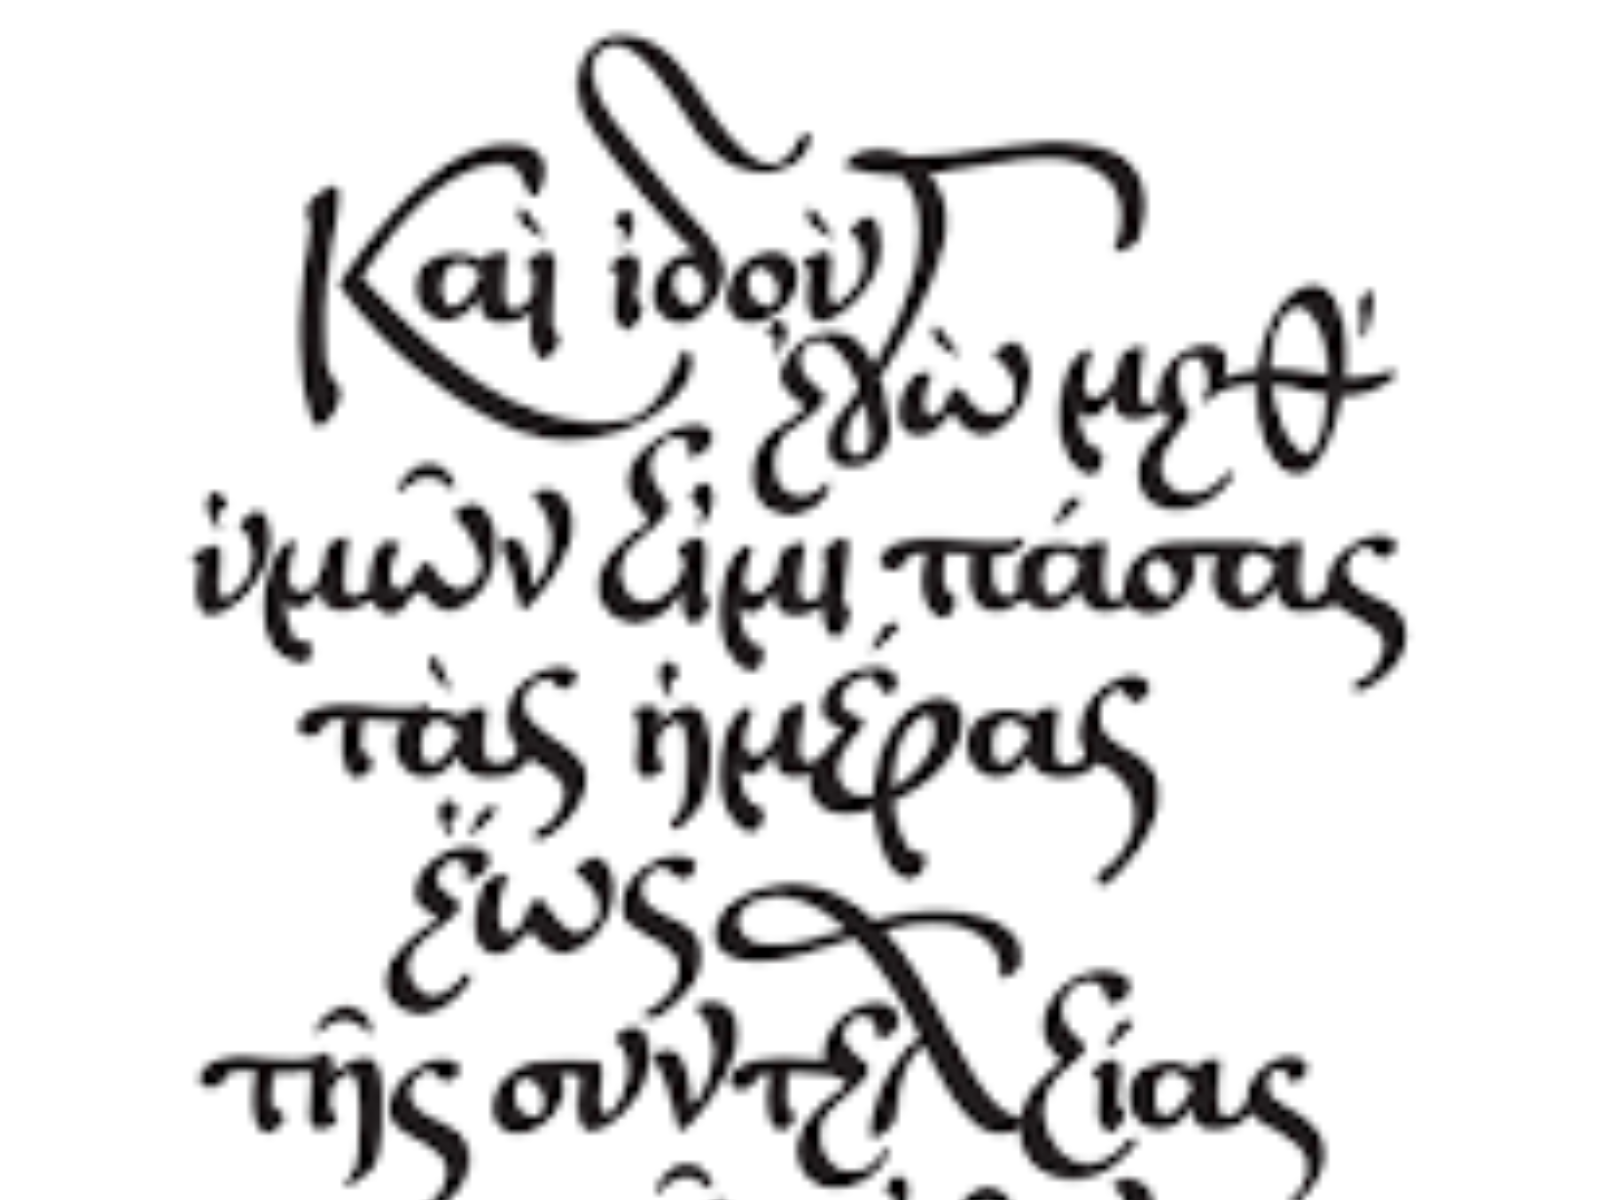 Καὶ ἰδοὺ
ἐγὼ μεθ'
ὑμῶν εἰμι πάσας
τὰς ἡμέρας
ἕως
τῆς συντελείας